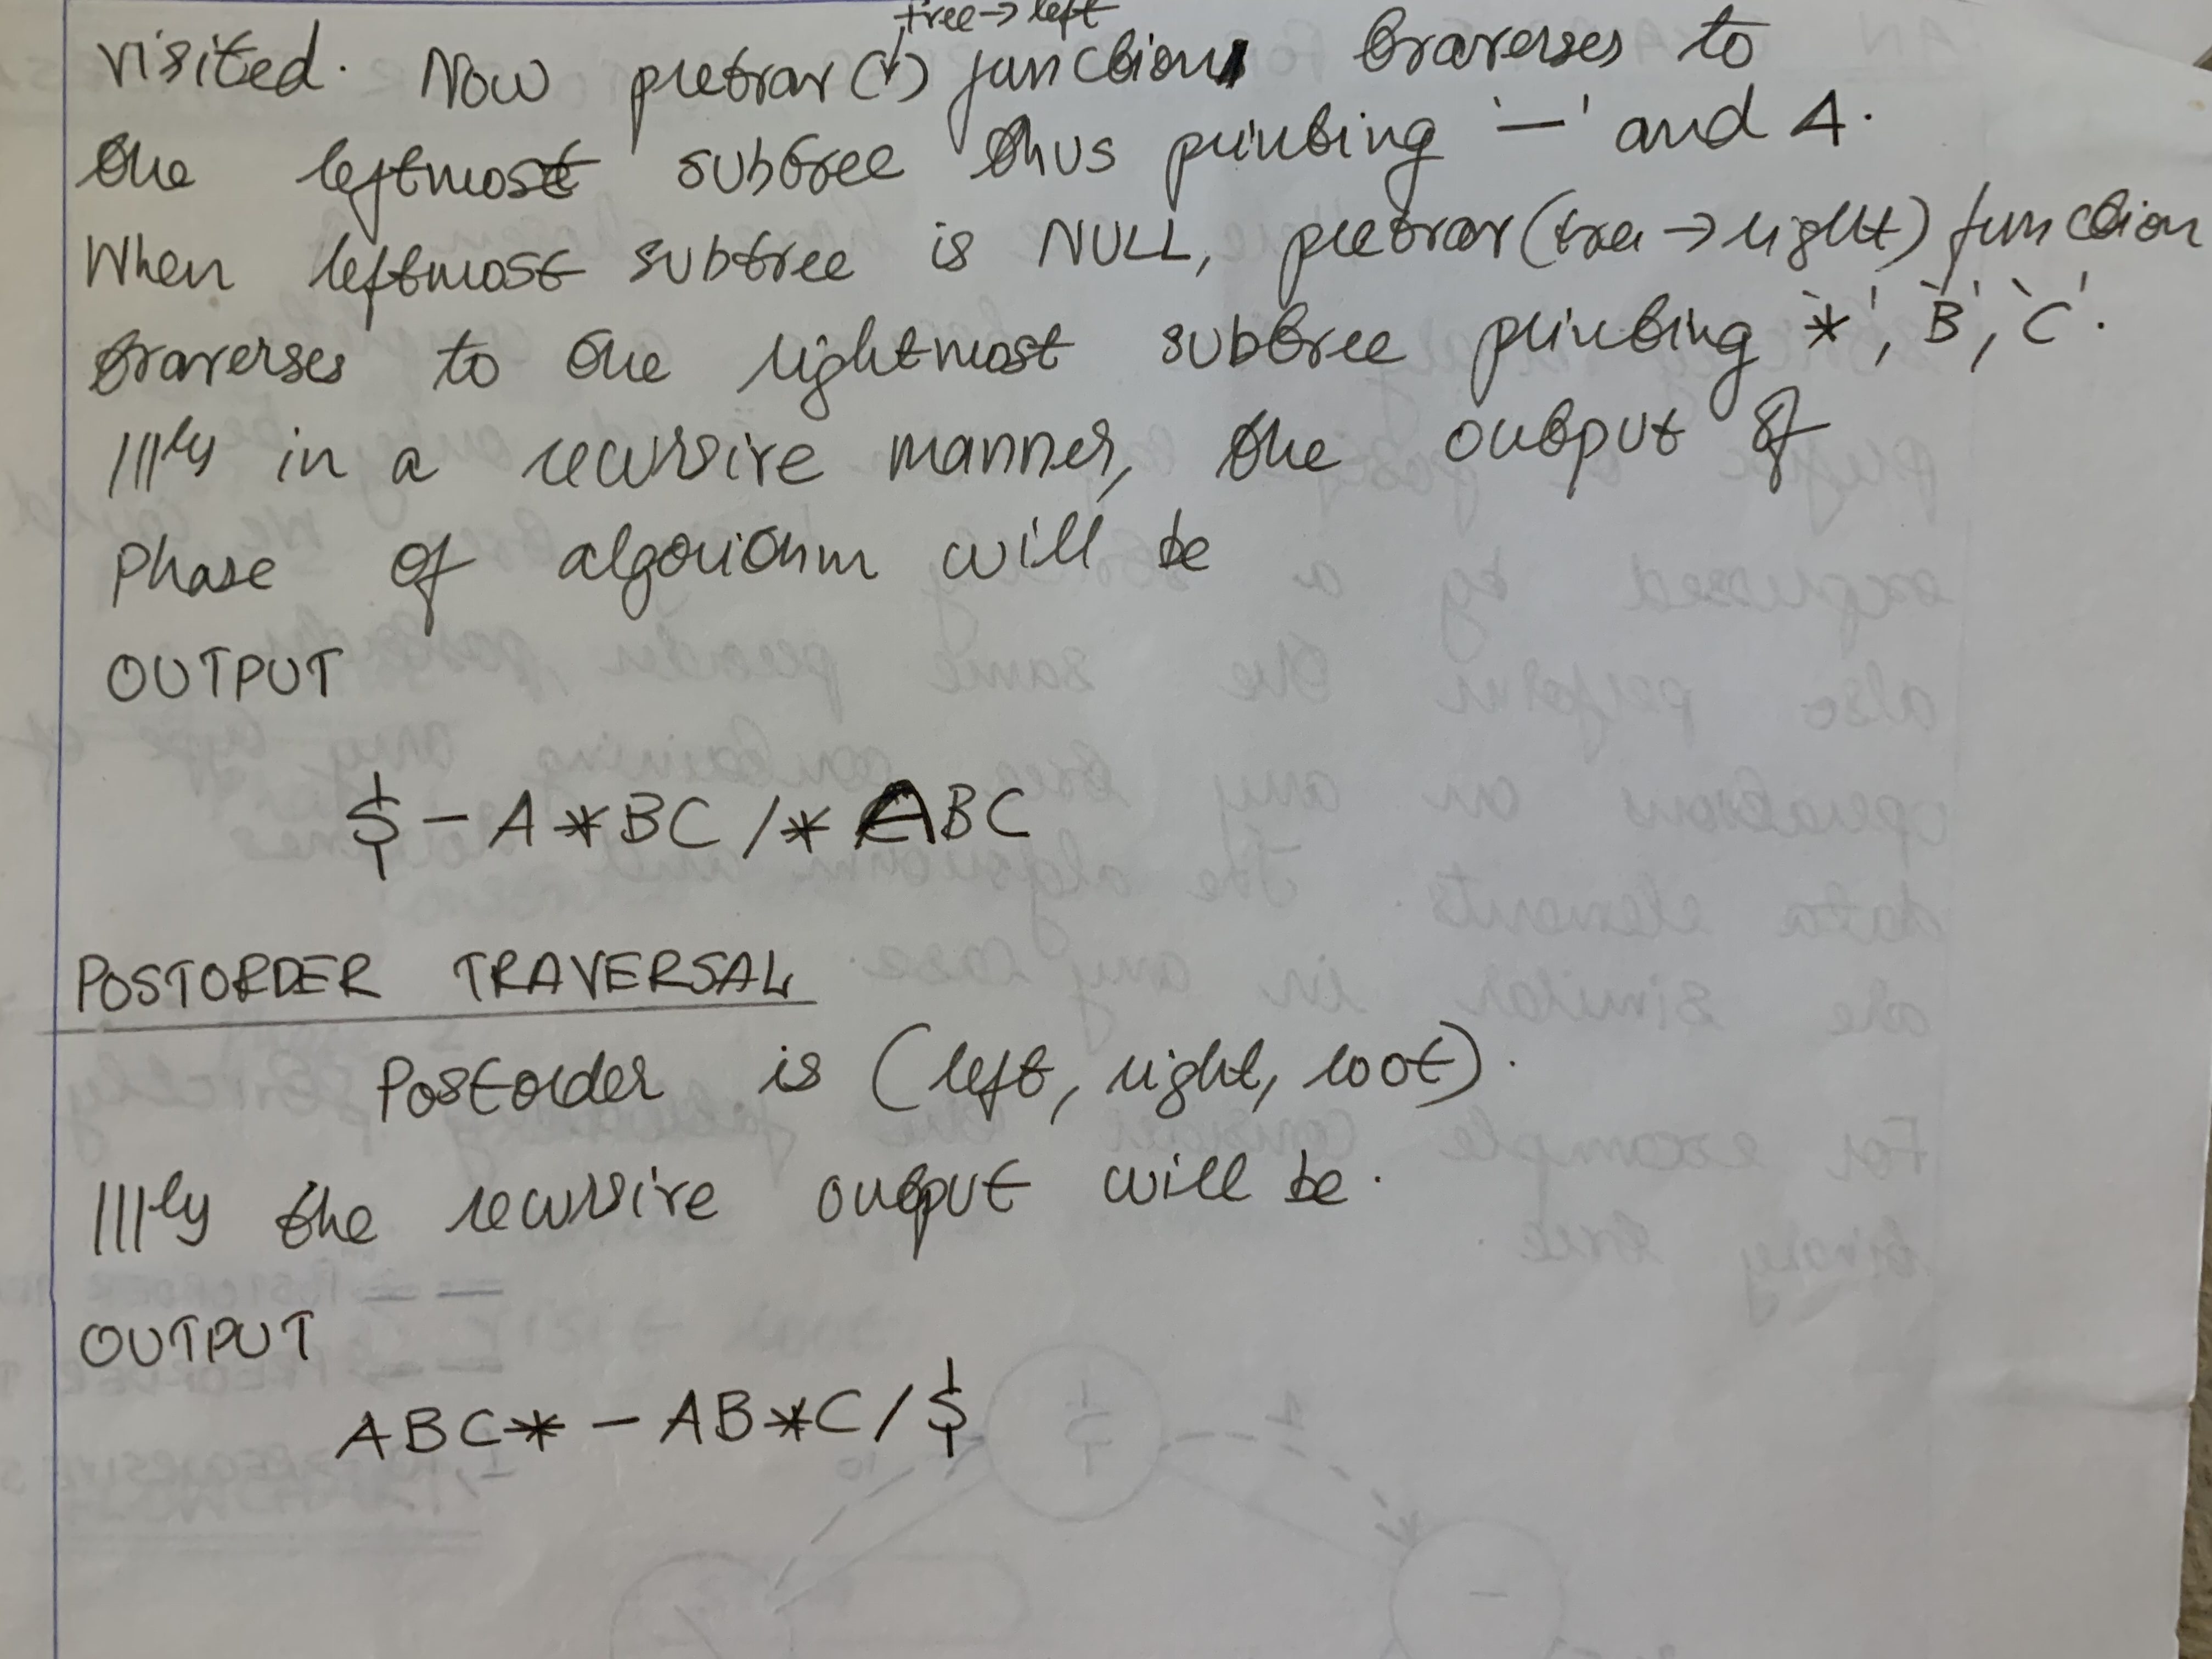 tree→left
visited. Now pretrav(↓) function traverses to
the leftmost subtree thus printing '—' and A.
When leftmost subtree is NULL, pretrav(tree→right) function
traverses to the rightmost subtree printing '*', 'B', 'C'.
|||ly in a recursive manner, the output of
phase of algorithm will be
OUTPUT
$ - A * B C / * A B C
POSTORDER TRAVERSAL
Postorder is (left, right, root).
|||ly the recursive output will be.
OUTPUT
A B C * - A B * C / $